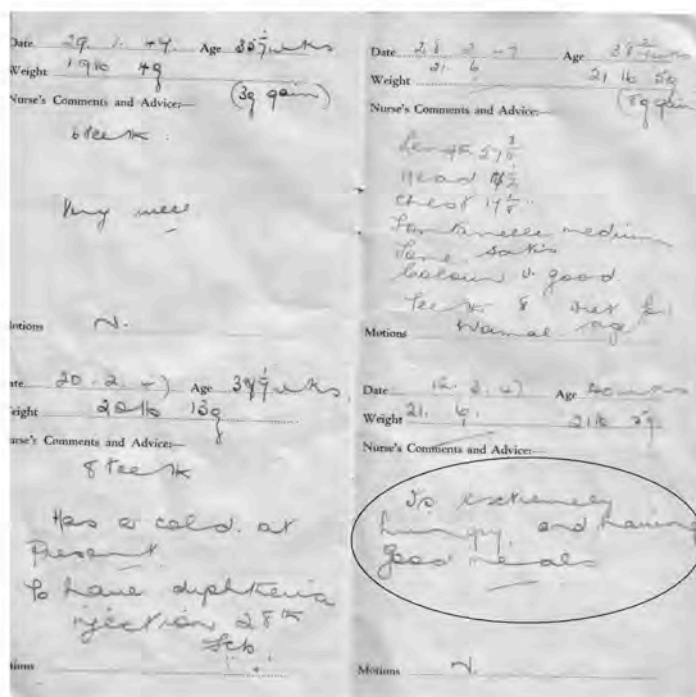 Date 29. 1. 47. Age wks
Weight 19lb 4g
(3g gain)
Nurse's Comments and Advice:—
6 teeth.
Very well
Motions N.
Date 20. 2. 47 Age wks
Weight 20lb 13g
Nurse's Comments and Advice:—
8 teeth
Has a cold at
Present
To have diphtheria
injection 28th
Feb
Motions
Date 28 2 47 Age wks
21. 6
Weight 21 lb 5g
(8g gain)
Nurse's Comments and Advice:—
Length 27
Head
Chest
Fontanelle medium
Tone satis
Colour v. good
Teeth 8 Diet for
Motions Normal age
Date 12. 3. 47 Age 40 wks
Weight 21. 6. 21lb 5g
Nurse's Comments and Advice:—
Is extremely
hungry, and having
good meals
Motions N.